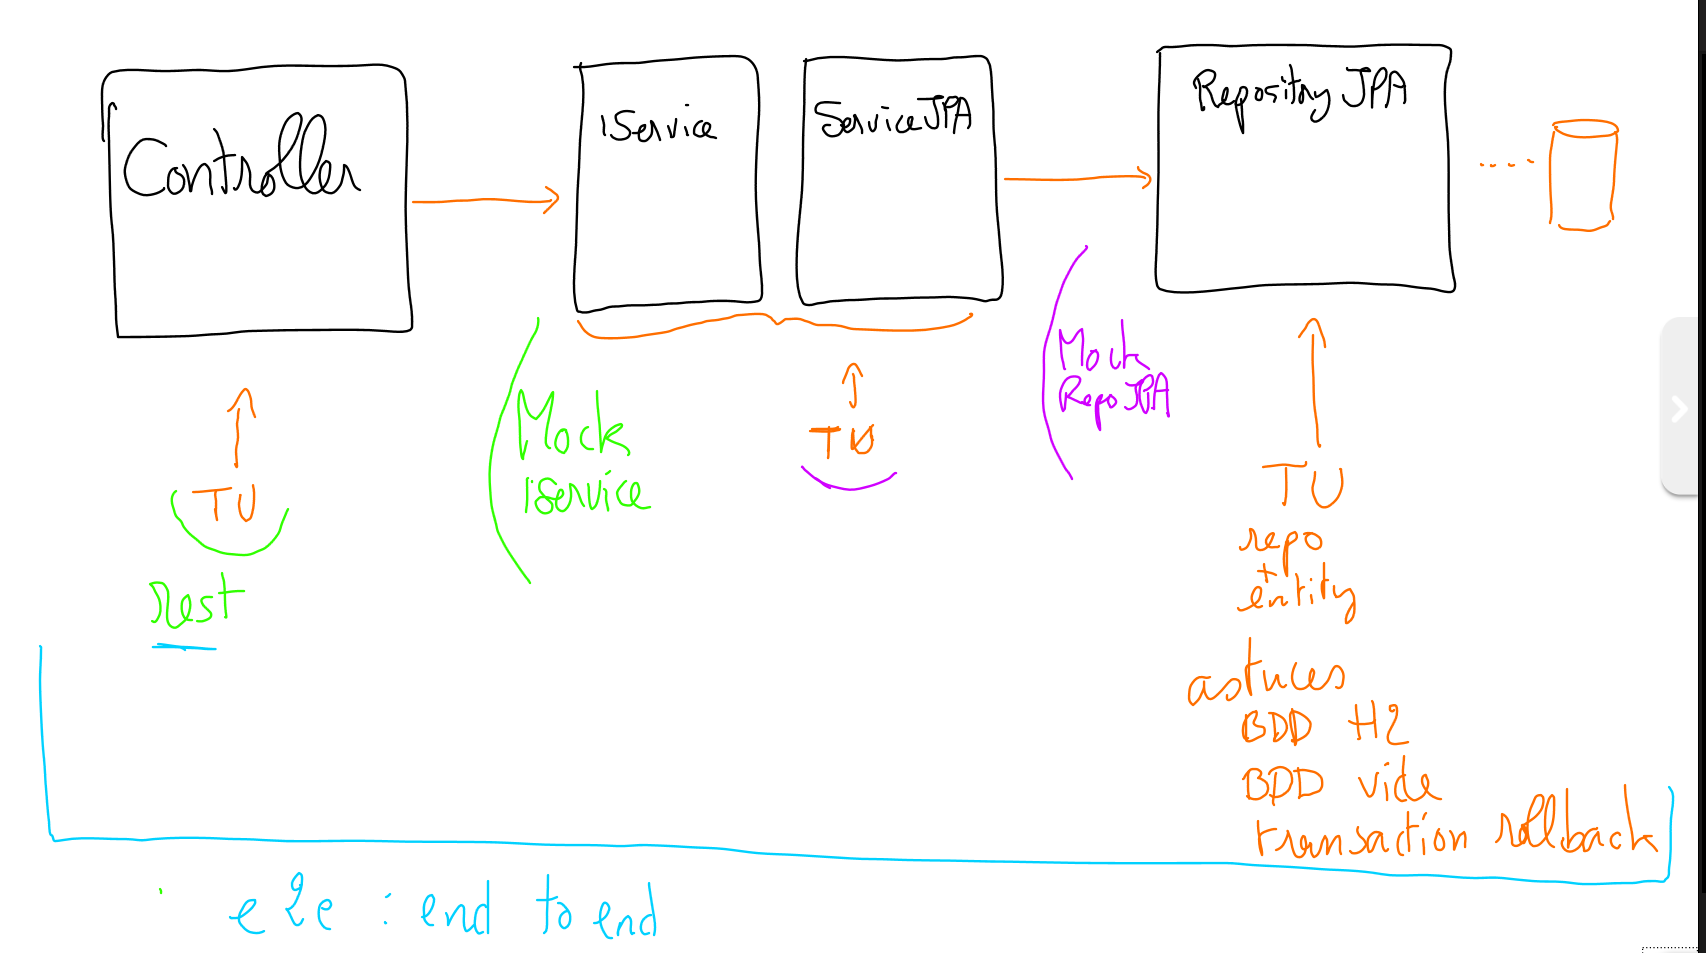 Controller
iService
ServiceJPA
Repository JPA
TU
rest
Mock
iService
TU
Mock
Repo JPA
TU
repo
+
entity
astuces
BDD H2
BDD vide
transaction rollback
e2e : end to end